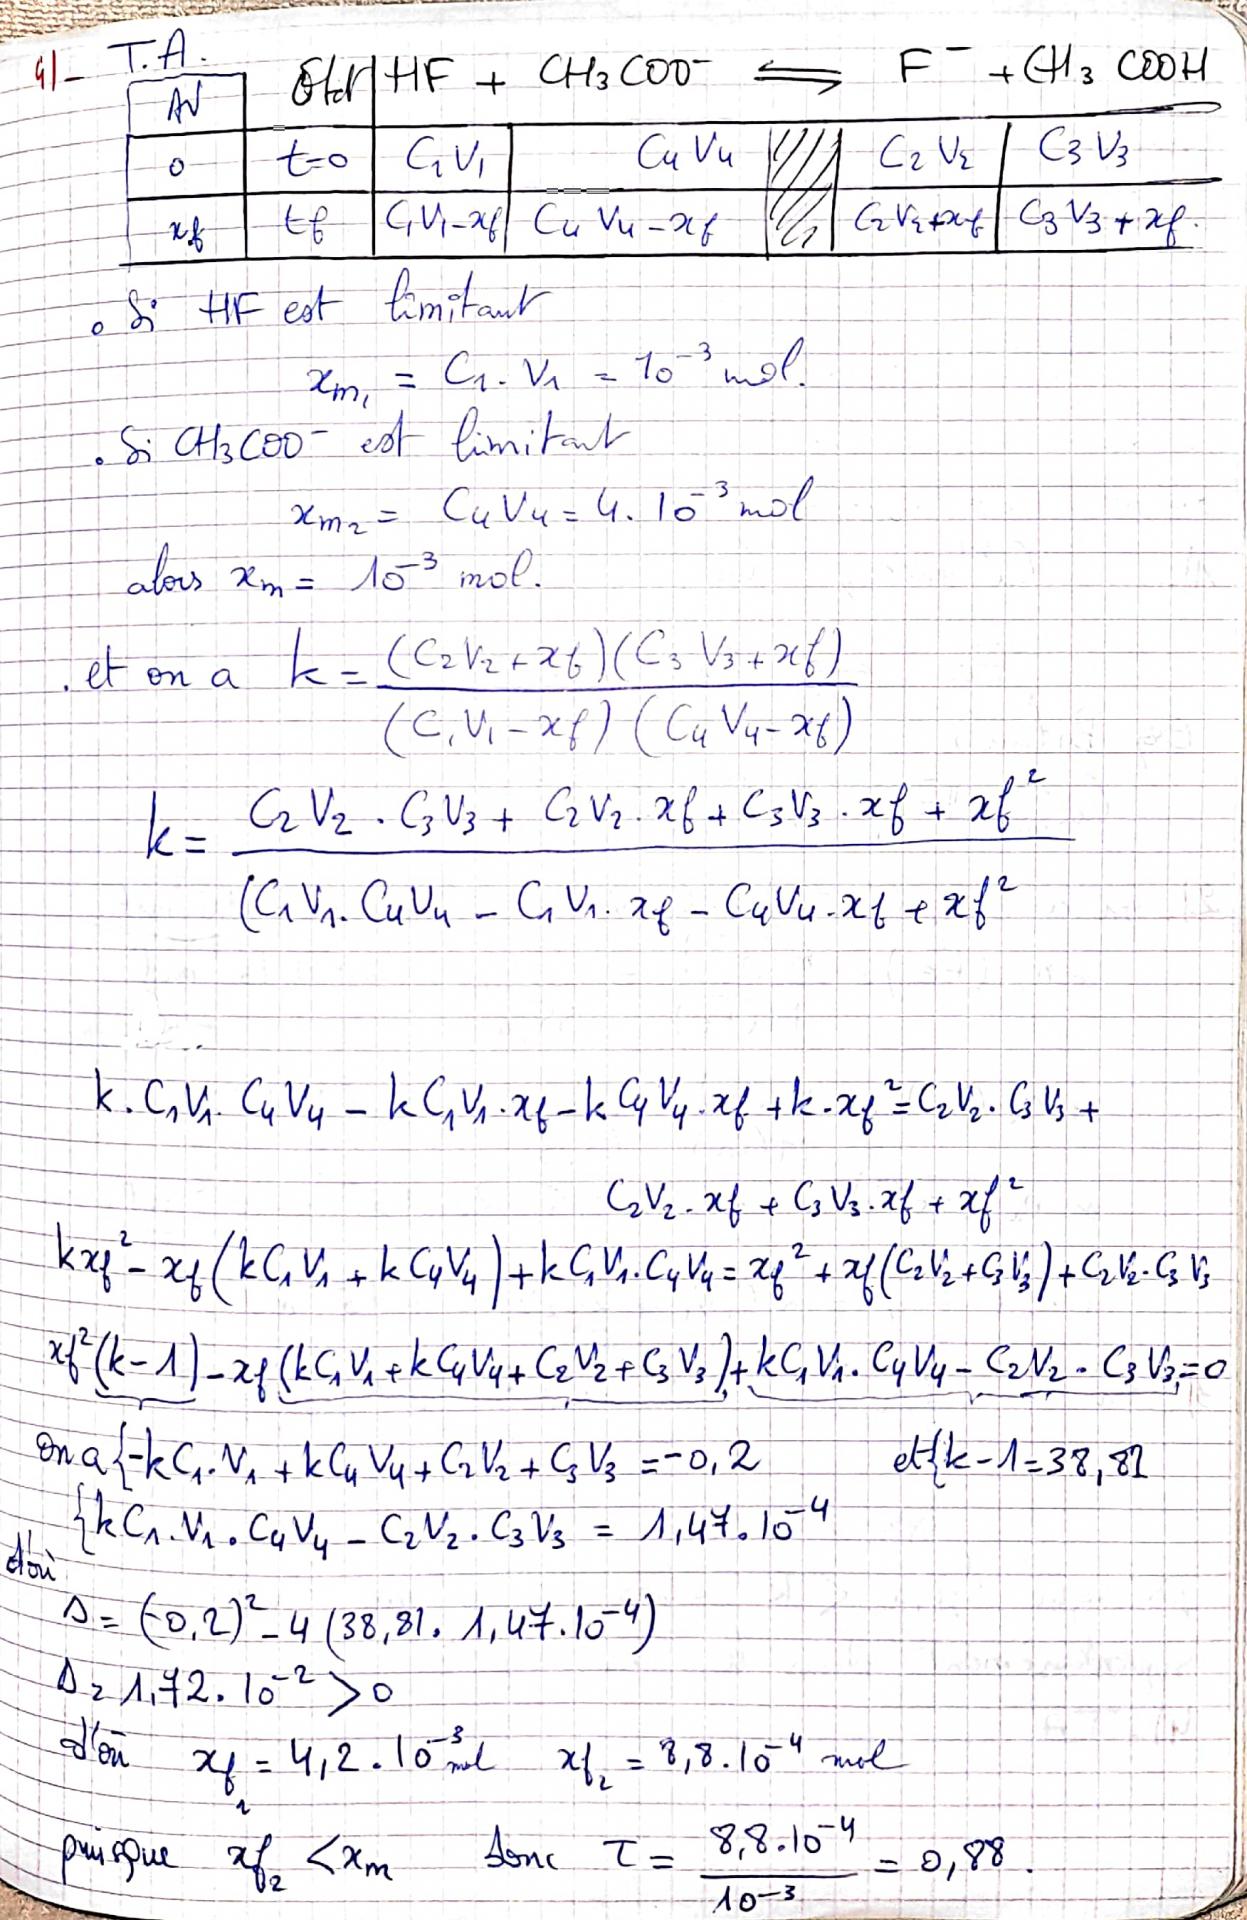 4)- T.A.
AV Etat HF + CH₃COO⁻ ⇌ F⁻ + CH₃COOH
0 t=0 C₁V₁ C₄V₄ C₂V₂ C₃V₃
xf tf C₁V₁-xf C₄V₄-xf C₂V₂+xf C₃V₃+xf.
• Si HF est limitant
xm₁ = C₁.V₁ = 10⁻³ mol.
• Si CH₃COO⁻ est limitant
xm₂ = C₄V₄ = 4.10⁻³ mol
alors xm = 10⁻³ mol.
. et on a k = (C₂V₂+xf)(C₃V₃+xf) / (C₁V₁-xf)(C₄V₄-xf)
k = C₂V₂.C₃V₃ + C₂V₂.xf + C₃V₃.xf + xf² / (C₁V₁.C₄V₄ - C₁V₁.xf - C₄V₄.xf + xf²
k.C₁V₁.C₄V₄ - kC₁V₁.xf - kC₄V₄.xf + k.xf² = C₂V₂.C₃V₃ +
C₂V₂.xf + C₃V₃.xf + xf²
kxf² - xf(kC₁V₁ + kC₄V₄) + kC₁V₁.C₄V₄ = xf² + xf(C₂V₂+C₃V₃) + C₂V₂.C₃V₃
xf²(k-1) - xf(kC₁V₁ + kC₄V₄ + C₂V₂ + C₃V₃) + kC₁V₁.C₄V₄ - C₂V₂.C₃V₃ = 0
on a {-kC₁.V₁ + kC₄V₄ + C₂V₂ + C₃V₃ = -0,2 et {k-1 = 38,81
{kC₁.V₁.C₄V₄ - C₂V₂.C₃V₃ = 1,47.10⁻⁴
d'où
Δ = (-0,2)² - 4(38,81.1,47.10⁻⁴)
Δ = 1,72.10⁻² > 0
d'où xf₁ = 4,2.10⁻³ mol xf₂ = 8,8.10⁻⁴ mol
puisque xf₂ < xm donc τ = 8,8.10⁻⁴ / 10⁻³ = 0,88.